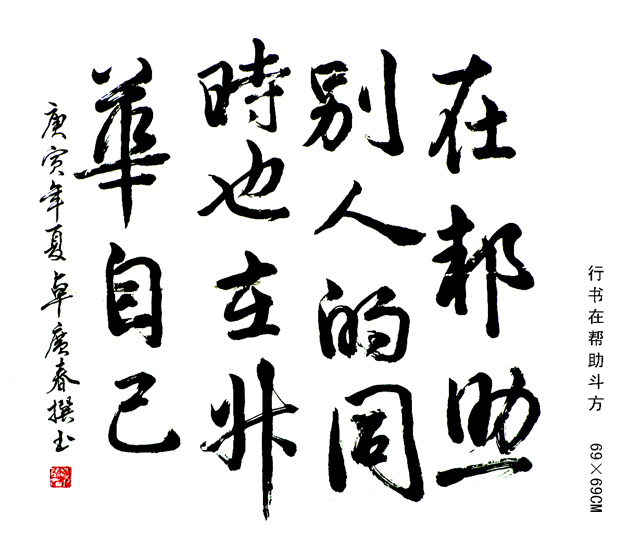 行书在帮助斗方 69×69CM
在邦助
别人的同
時也在升
華自己
庚寅年夏卓廣春撰书